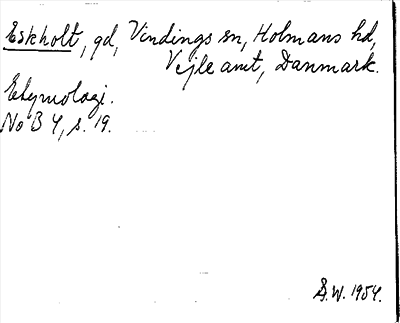 Eskholt, gd, Vindings sn, Holmans hd,
Vejle amt, Danmark.
Etymologi.
No B 4, s. 19.
S.W. 1954.